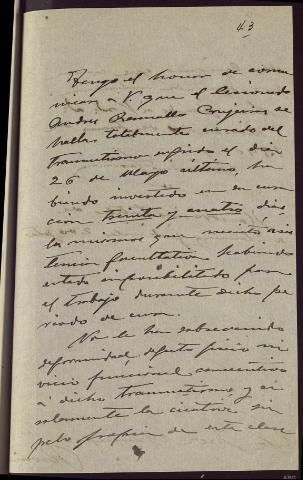 43
Tengo el honor de comu
nicar a V. que el lesionado
Andres Ramallo
halla totalmente curado del
traumatismo sufrido el dia
26 de Mayo último, ha
biendo invertido en su cura
cion treinta y cuatro dias
los mismos que necesitó asis
tencia facultativa habiendo
estado imposibilitado para
el trabajo durante dicho pe
riodo de cura.
No le han sobrevenido
deformidad, defecto fisico ni
vicio funcional consecutivo
á dicho traumatismo y si
solamente la cicatriz sin
pelo propia de esta clase